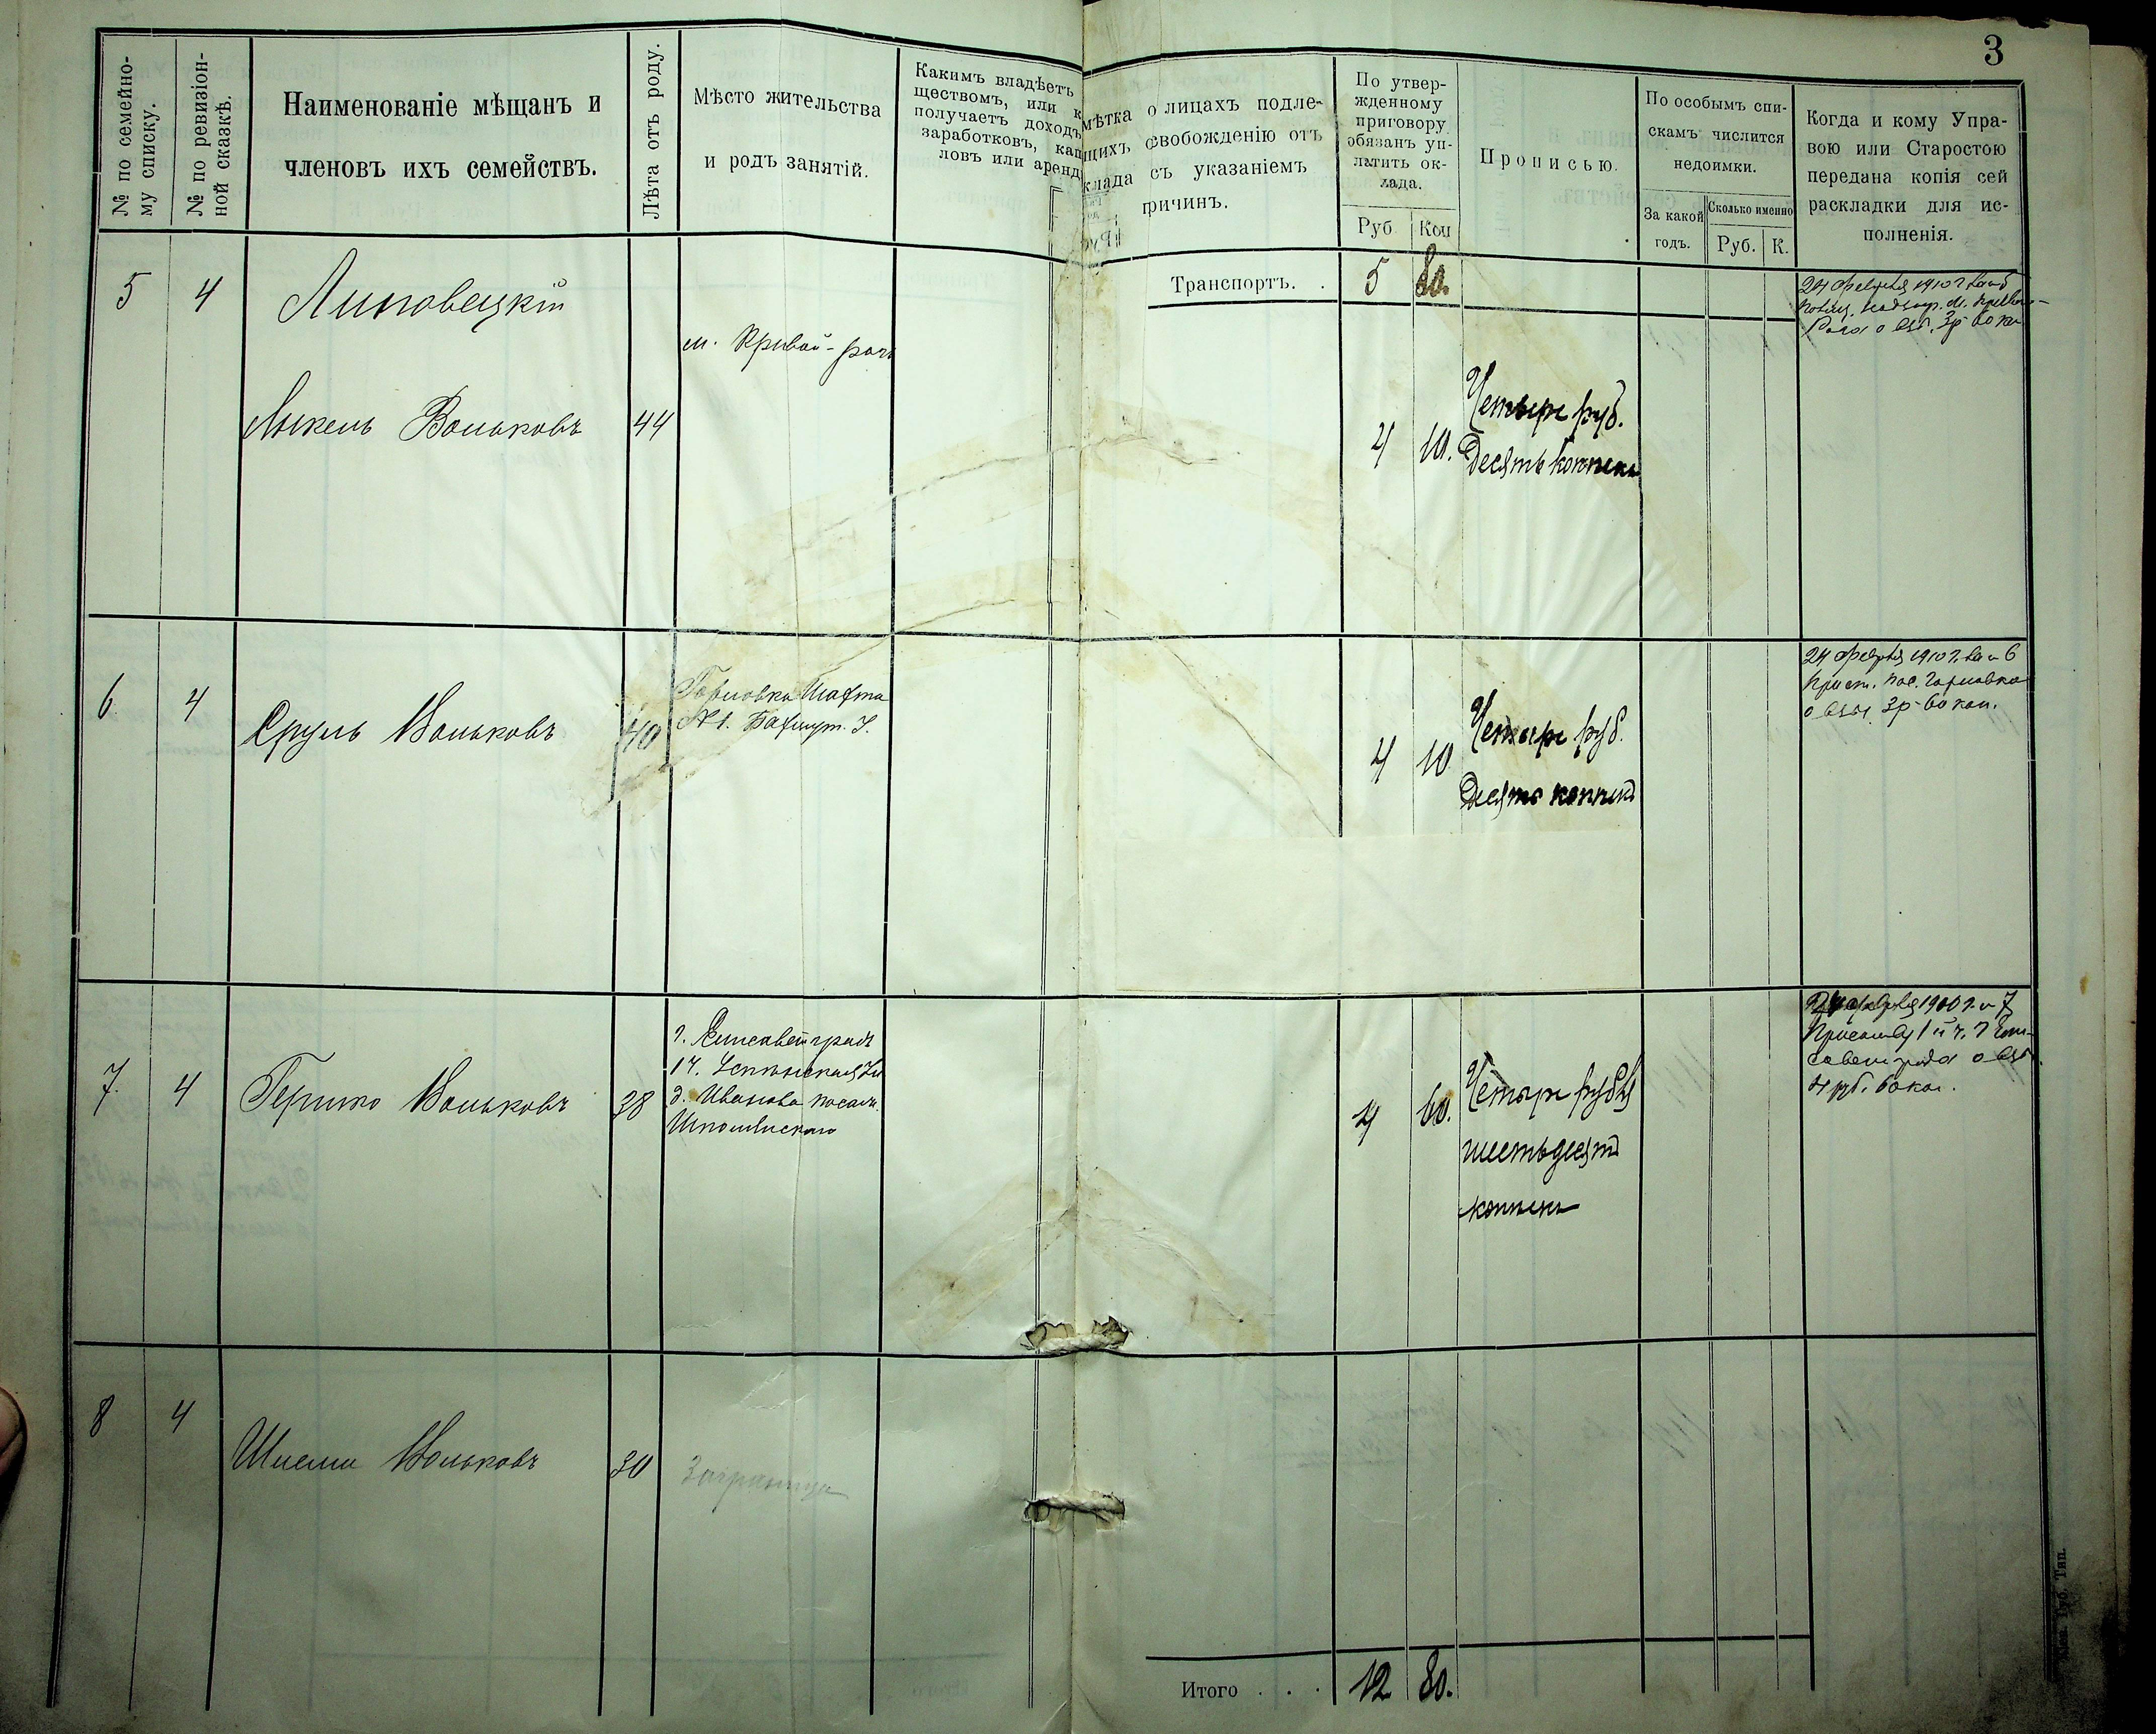 3
№ по семейно-
му списку.
№ по ревизіон-
ной сказкѣ.
Наименованіе мѣщанъ и
членовъ ихъ семействъ.
Лѣта отъ роду.
Мѣсто жительства
и родъ занятій.
Какимъ владѣетъ
ществомъ, или к
получаетъ доходъ
заработковъ, кап
ловъ или аренд
мѣтка о лицахъ подле-
щихъ освобожденію отъ
клада съ указаніемъ
причинъ.
По утвер-
жденному
приговору
обязанъ уп-
латить ок-
лада.
Руб Коп
Прописью.
По особымъ спи-
скамъ числится
недоимки.
За какой
годъ.
Сколько именно
Руб. К.
Когда и кому Упра-
вою или Старостою
передана копія сей
раскладки для ис-
полненія.
Транспортъ. . 5 80.
5 4 Липовецкій
м. Кривой-рогъ
24 февраля 1910 г. за № 5
Полиц. надзир. м. Кривого-
Рога о взы. 3 р 60 ко
Янкель Вольковъ 44
4 10.
Четыре руб.
Десять копѣекъ
6 4 Сруль Вольковъ 40
Горловка Шахта
№ 1. Бахмут. У.
4 10
Четыре руб.
Десять копѣекъ
24 февраля 1910 г. за № 6
Прист. пос. Горловка
о взы. 3 р 60 коп.
7. 4 Гершко Вольковъ 38
г. Елисаветградъ
1 ч. Успенская Ул
д. Иванова
4 60.
Четыре рубля
шестьдесятъ
копѣекъ
24 февраля 1910 г. № 7
Приставу 1й ч. г Ели-
саветграда о взы.
4 руб. 60 коп.
8 4 Вольковъ 30 Заграница
Итого . . . 12 80.
Губ. Тип.